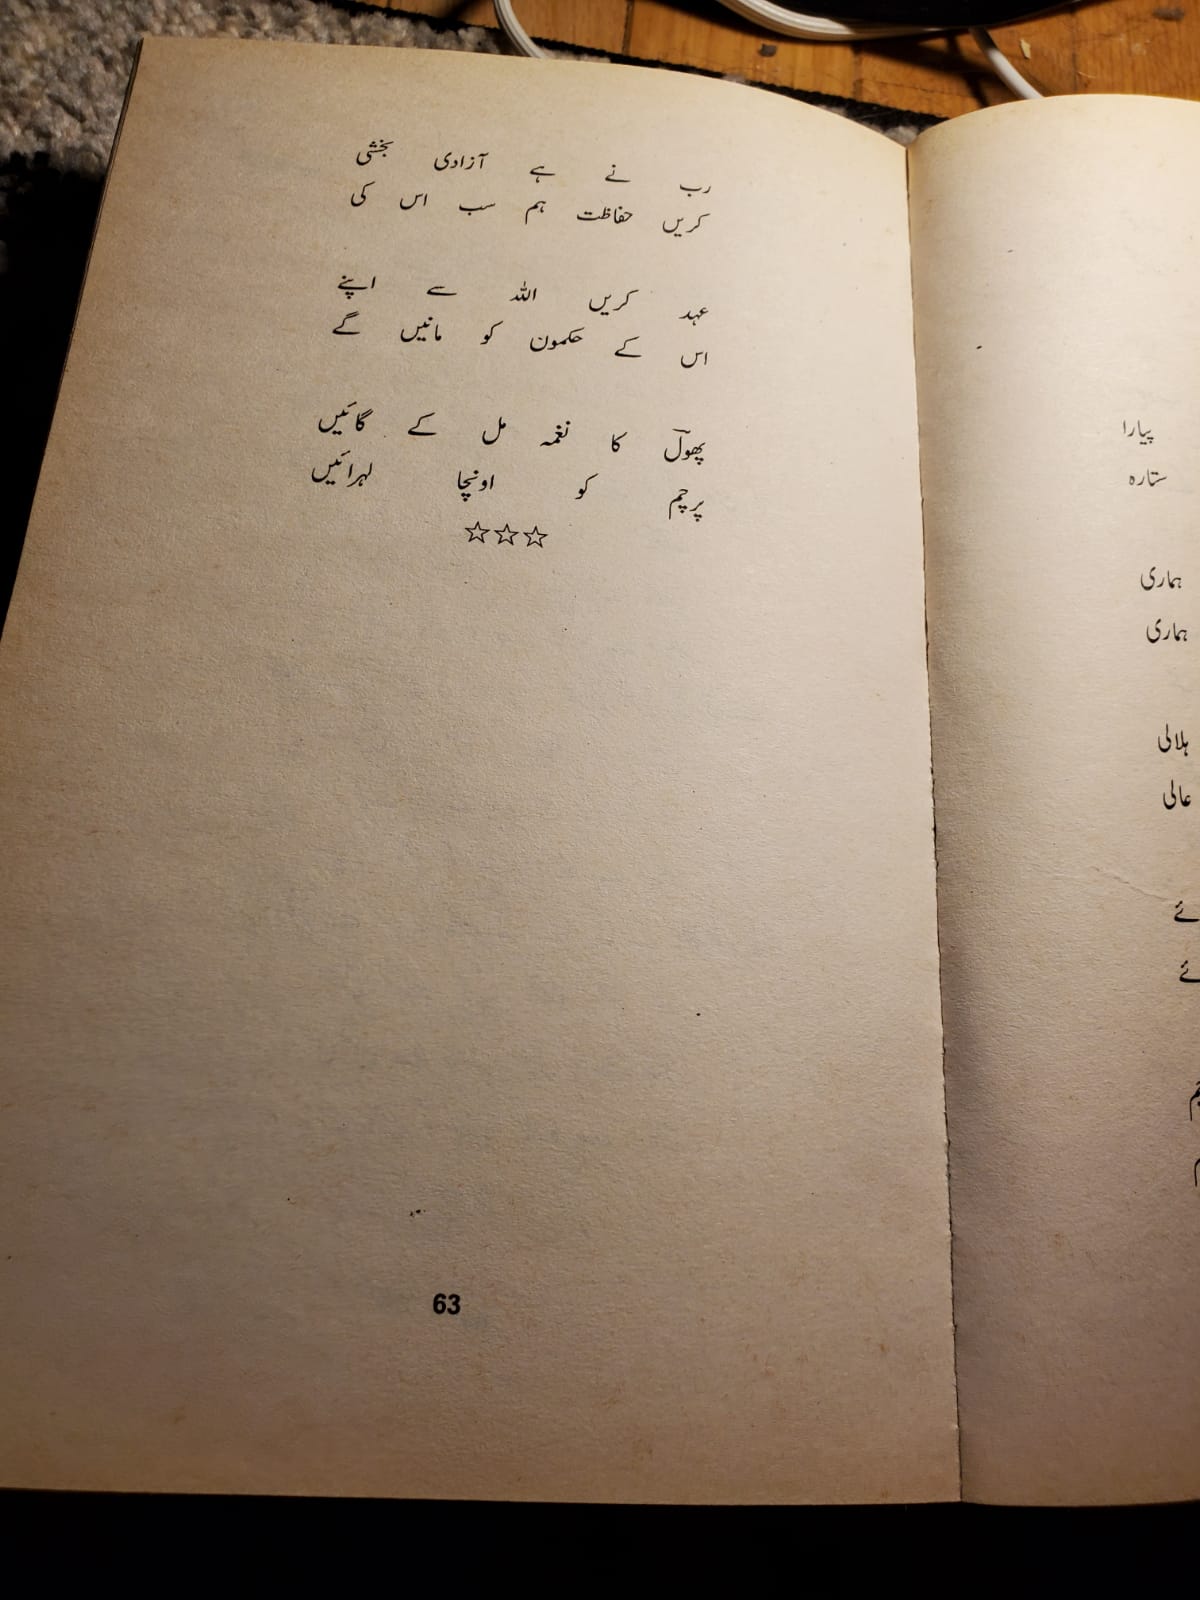 رب نے ہے آزادی بخشی
کریں حفاظت ہم سب اس کی
عہد کریں اللہ سے اپنے
اس کے حکمون کو مانیں گے
پھولؔ کا نغمہ مل کے گائیں
پرچم کو اونچا لہرائیں
☆☆☆
63
پیارا
ستارہ
ہماری
ہماری
ہلالی
عالی